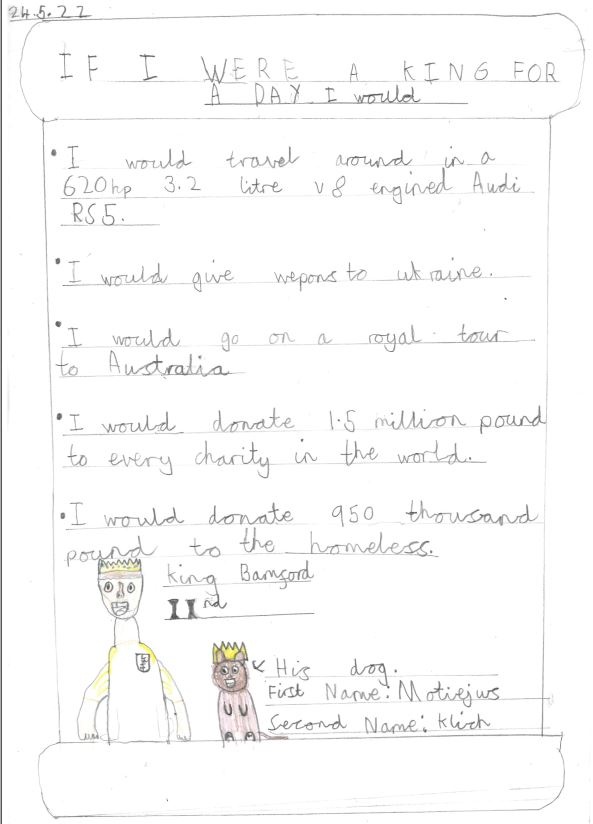 24.5.22
IF I WERE A KING FOR
A DAY I would
• I would travel around in a
620hp 3.2 litre v8 engined Audi
RS5.
• I would give wepons to ukraine.
• I would go on a royal tour
to Australia
• I would donate 1.5 million pound
to every charity in the world.
• I would donate 950 thousand
pound to the homeless.
king Bamsord
II nd
His dog.
First Name: Motiejus
Second Name: Klich